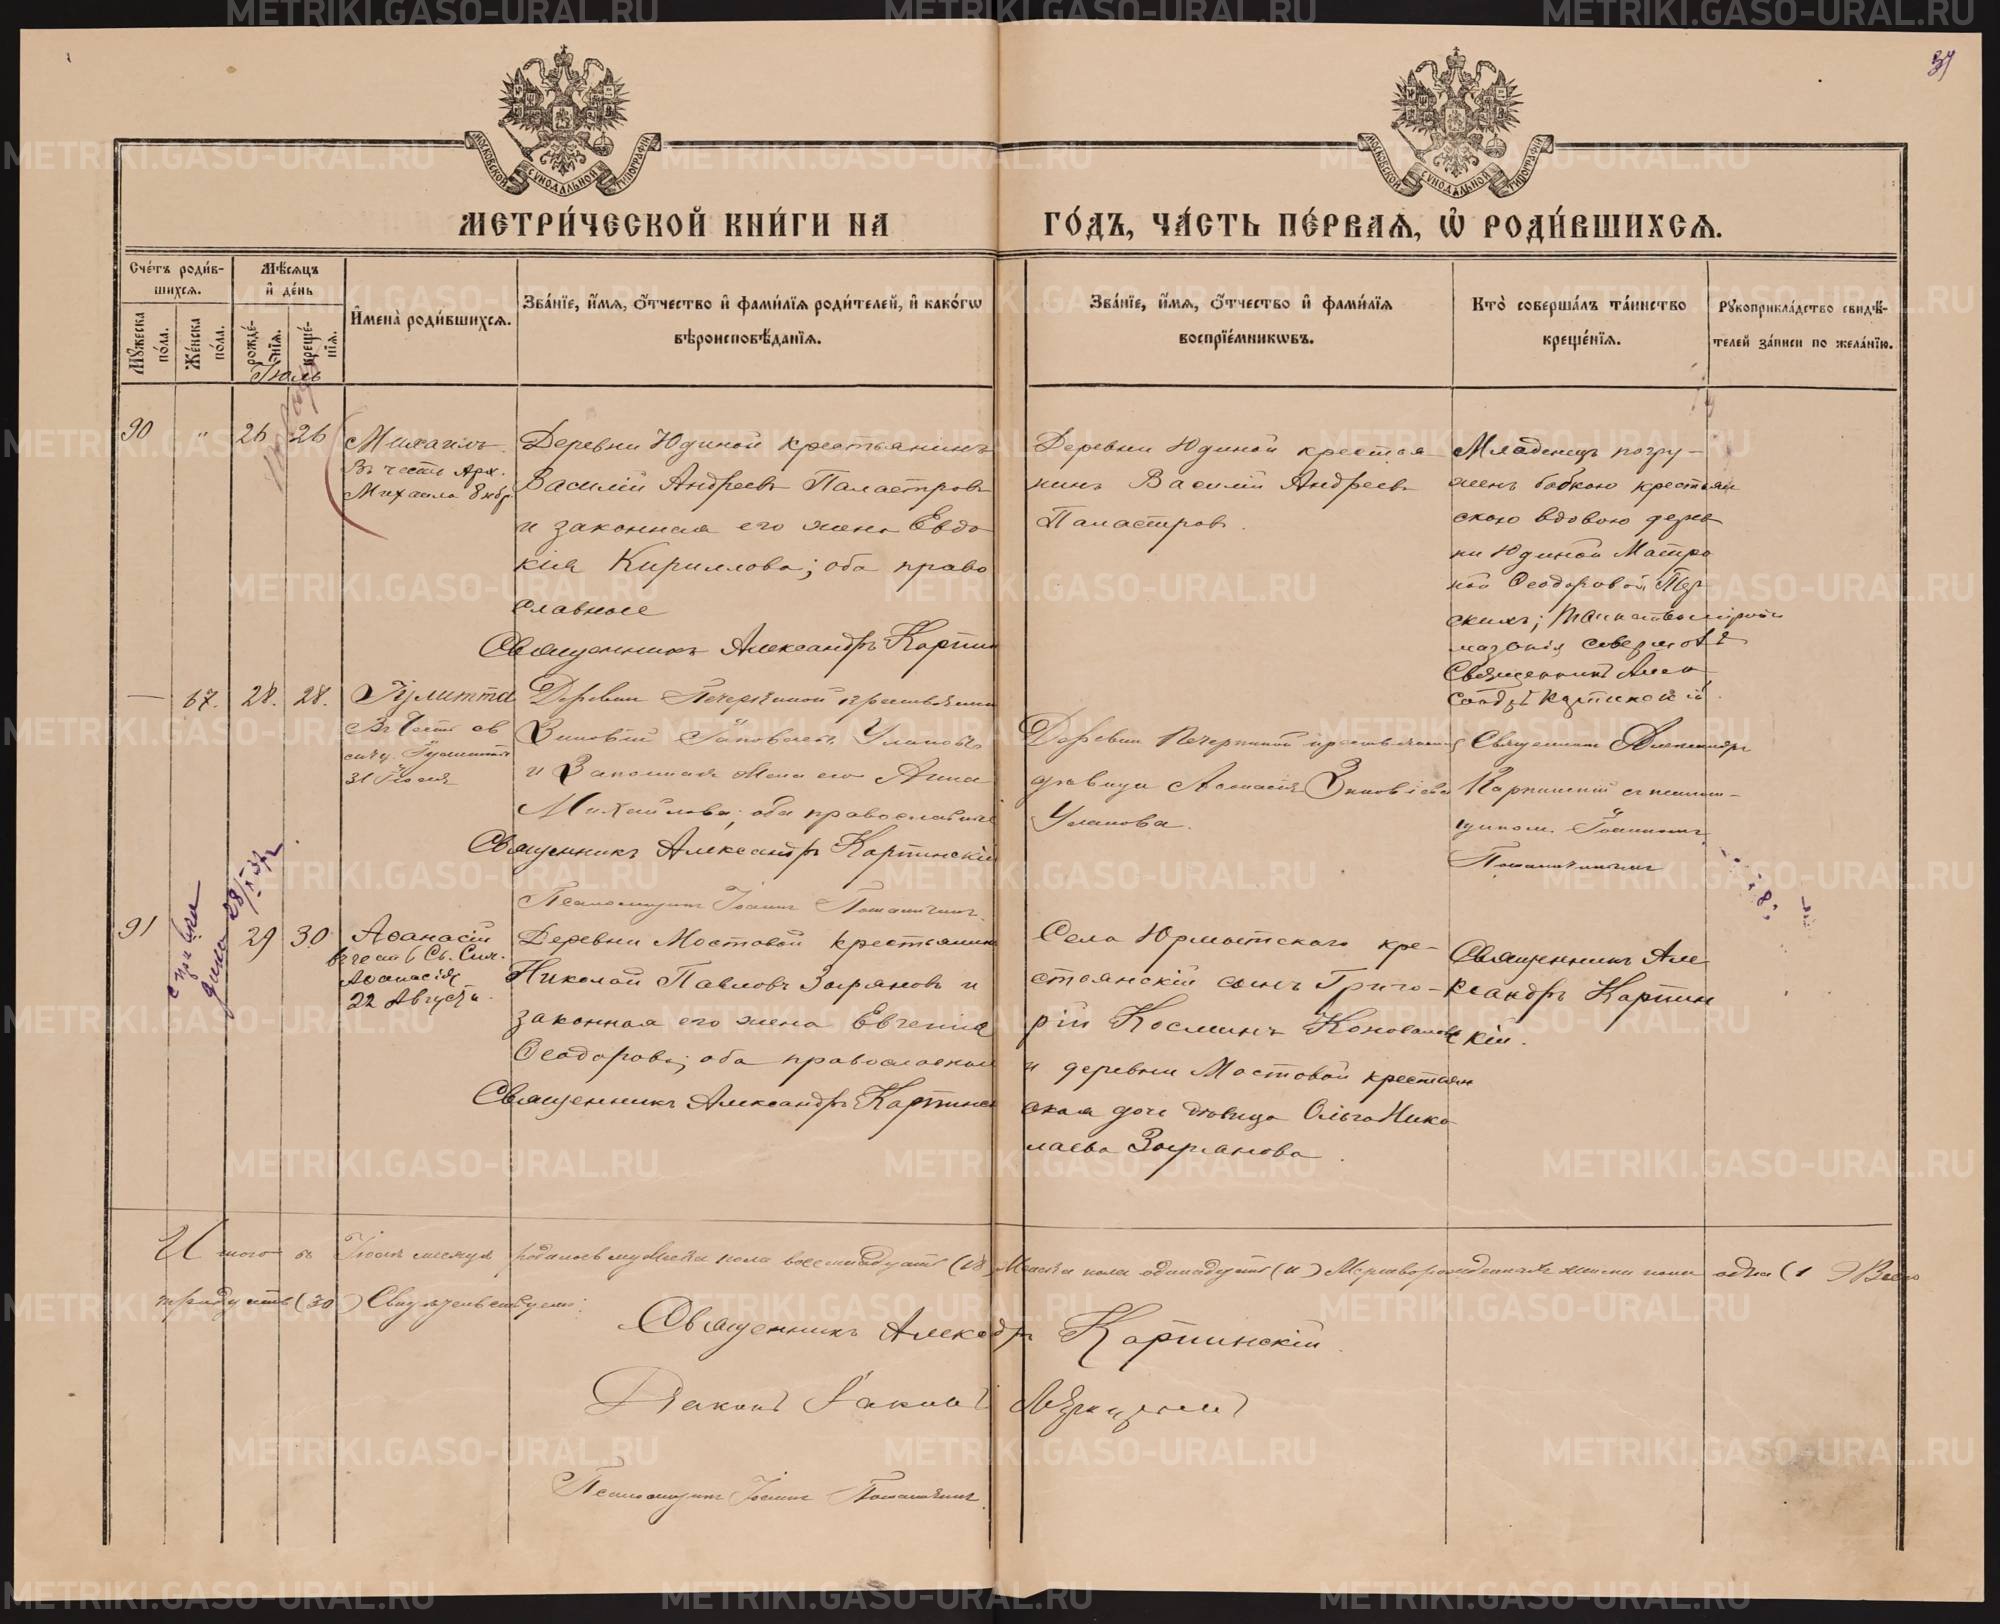 37
МОСКОВСКОЙ СѴНОДАЛЬНОЙ ТИПОГРАФІИ
МОСКОВСКОЙ СѴНОДАЛЬНОЙ ТИПОГРАФІИ
МЕТРИ́ЧЕСКОЙ КНИ́ГИ НА
ГО́ДЪ, ЧА́СТЬ ПЕ́РВАѦ, Ѡ҆ РОДИ́ВШИХСѦ.
Сче́тъ роди́в-
шихсѧ.
Мѣ́сѧцъ
и҆ де́нь
Мꙋ́жеска по́ла.
Же́нска по́ла.
рожде́-нїѧ.
креще́-нїѧ.
И҆мена̀ роди́вшихсѧ.
Зва́нїе, и҆́мѧ, ѻ҆́тчество и҆ фами́лїѧ роди́телей, и҆ како́гѡ
вѣроисповѣ́данїѧ.
Зва́нїе, и҆́мѧ, ѻ҆́тчество и҆ фами́лїѧ
воспрїе́мникѡвъ.
Кто̀ соверша́лъ та́инство
креще́нїѧ.
Рꙋкоприкла́дство свидѣ́-
телей за́писи по жела́нїю.
Іюль
90 " 26 26
Михаилъ
Въ честь Арх.
Михаила 8 нбр
Деревни Юдиной крестьянинъ
Василій Андреевъ Паластровъ
и законная его жена Евдо
кія Кириллова; оба право
славные
Священникъ Александръ Карпин
Деревни Юдиной крестья
нинъ Василій Андреевъ
Паластровъ.
Младенецъ погру-
женъ бабкою крестьян
скою вдовою дерев
ни Юдиной Матро
ной Ѳеодоровой
Священникъ Алек
— 67. 28. 28.
Іулитта
Въ честь св
муч. Іулитты
31 Іюля
Деревни Печеркиной крестьянинъ
Зиновій Улановъ
и Законная жена его Анна
Михайлова; оба православные
Священникъ Александръ Карпинскій
Псаломщикъ Іоаннъ
Деревни Печеркиной крестьянская
дѣвица Зиновіева
Уланова.
Священникъ Александръ
Карпинскій съ псалом-
щиком. Іоанномъ
91 29 30
Аѳанасій
въ честь Св. Сщм.
Аѳанасія
22 Августа.
Деревни Мостовой крестьянинъ
Николай Павловъ Зыряновъ и
законная его жена Евгенія
Ѳеодорова; оба православные
Священникъ Александръ Карпинск
Села Юрмытскаго кре-
стьянскій сынъ Григо-
рій Косминъ Коноваловъ
и деревни Мостовой крестьян
ская дочь дѣвица Ольга Нико
лаева Зырянова.
Священникъ Але
ксандръ Карпин
скій.
Итого въ Іюлѣ мѣсяцѣ родилось мужеска пола восемнадцать (18) Женска пола одинадцать (11) Мертворожденная женска пола одна (1) Всего
тридцать (30) Свидѣтельствуемъ:
Священникъ Александръ Карпинскій.
Діаконъ Іаковъ
Псаломщикъ Іоаннъ
METRIKI.GASO-URAL.RU